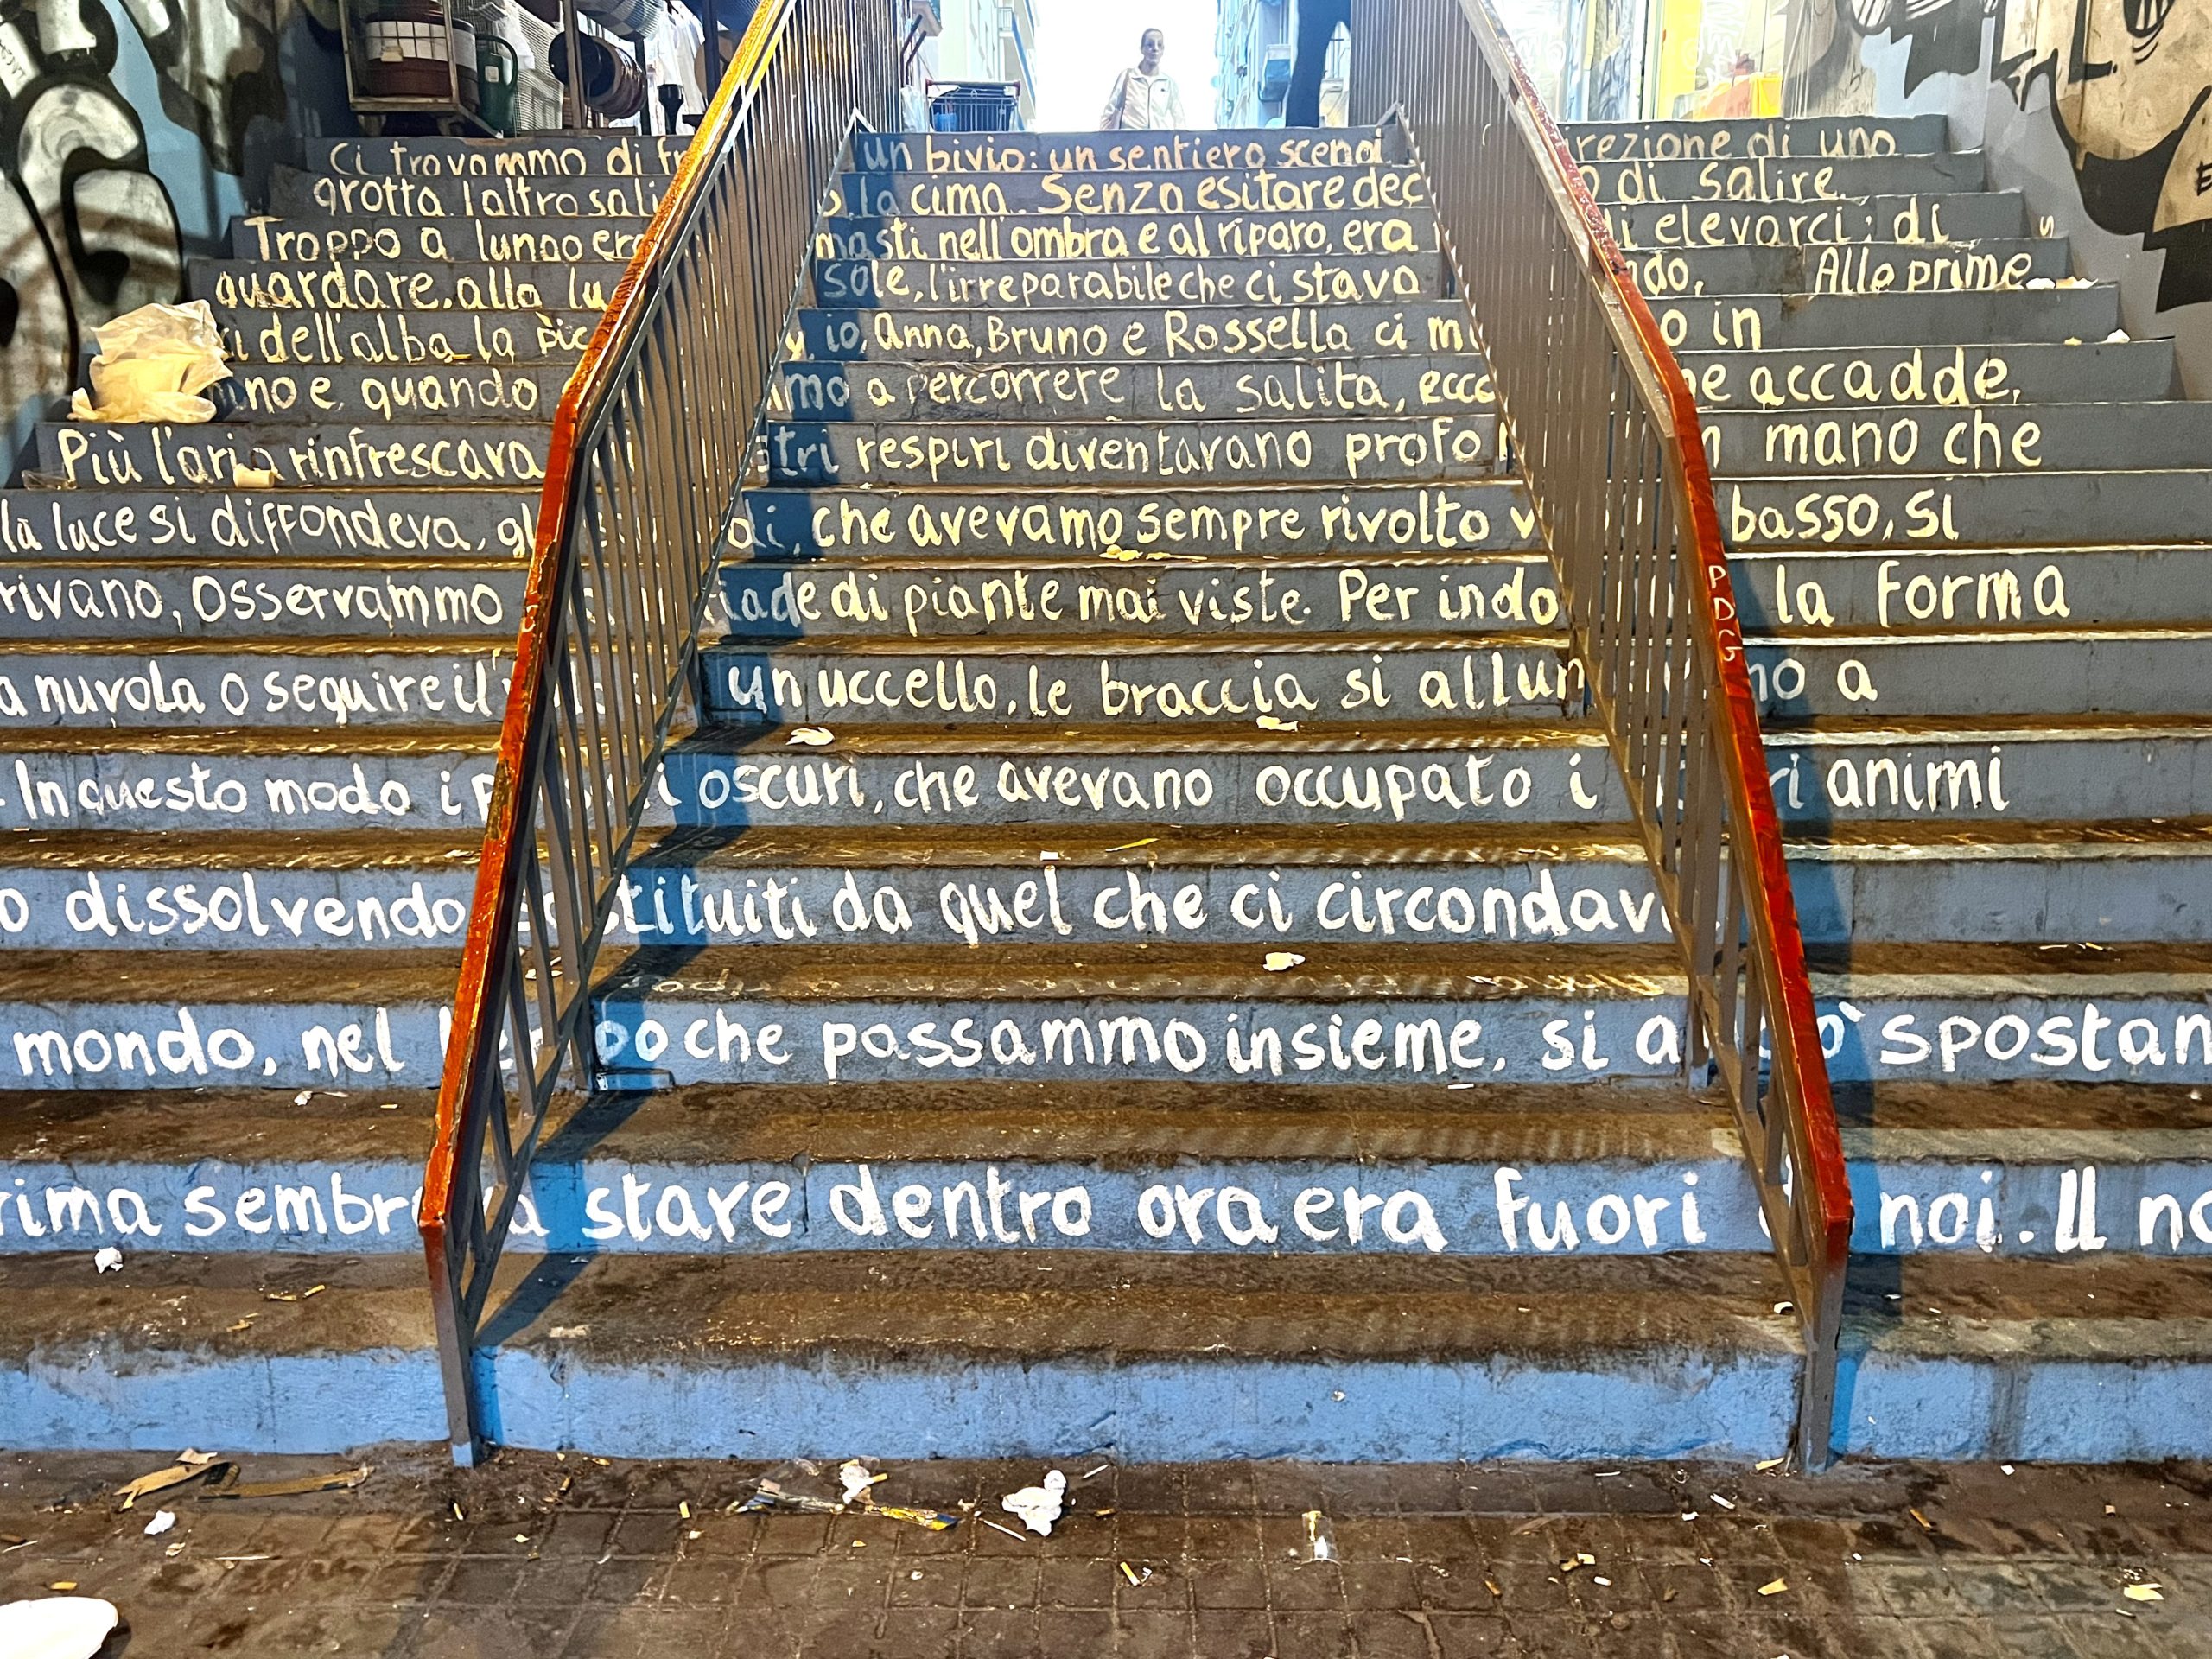 Ci trovammo di fr un bivio: un sentiero scendi rezione di uno
grotta l'altro sali la cima. Senza esitare dec o di salire.
Troppo a lungo era masti nell'ombra e al riparo, era di elevarci; di
guardare, alla lu sole, l'irreparabile che ci stava ndo, Alle prime
i dell'alba la pic y, io, Anna, Bruno e Rossella ci m o in
ino e, quando mmo a percorrere la salita, ecco he accadde.
Più l'aria rinfrescava stri respiri diventavano profo n mano che
la luce si diffondeva, gl di, che avevamo sempre rivolto v basso, si
rivano, Osservammo iade di piante mai viste. Per indo la forma
a nuvola o seguire il un uccello, le braccia si allun no a
. In questo modo i p i oscuri, che avevano occupato i ri animi
o dissolvendo sostituiti da quel che ci circondava
mondo, nel po che passammo insieme, si a ò spostan
rima sembra stare dentro ora era fuori di noi. Il no
PDG